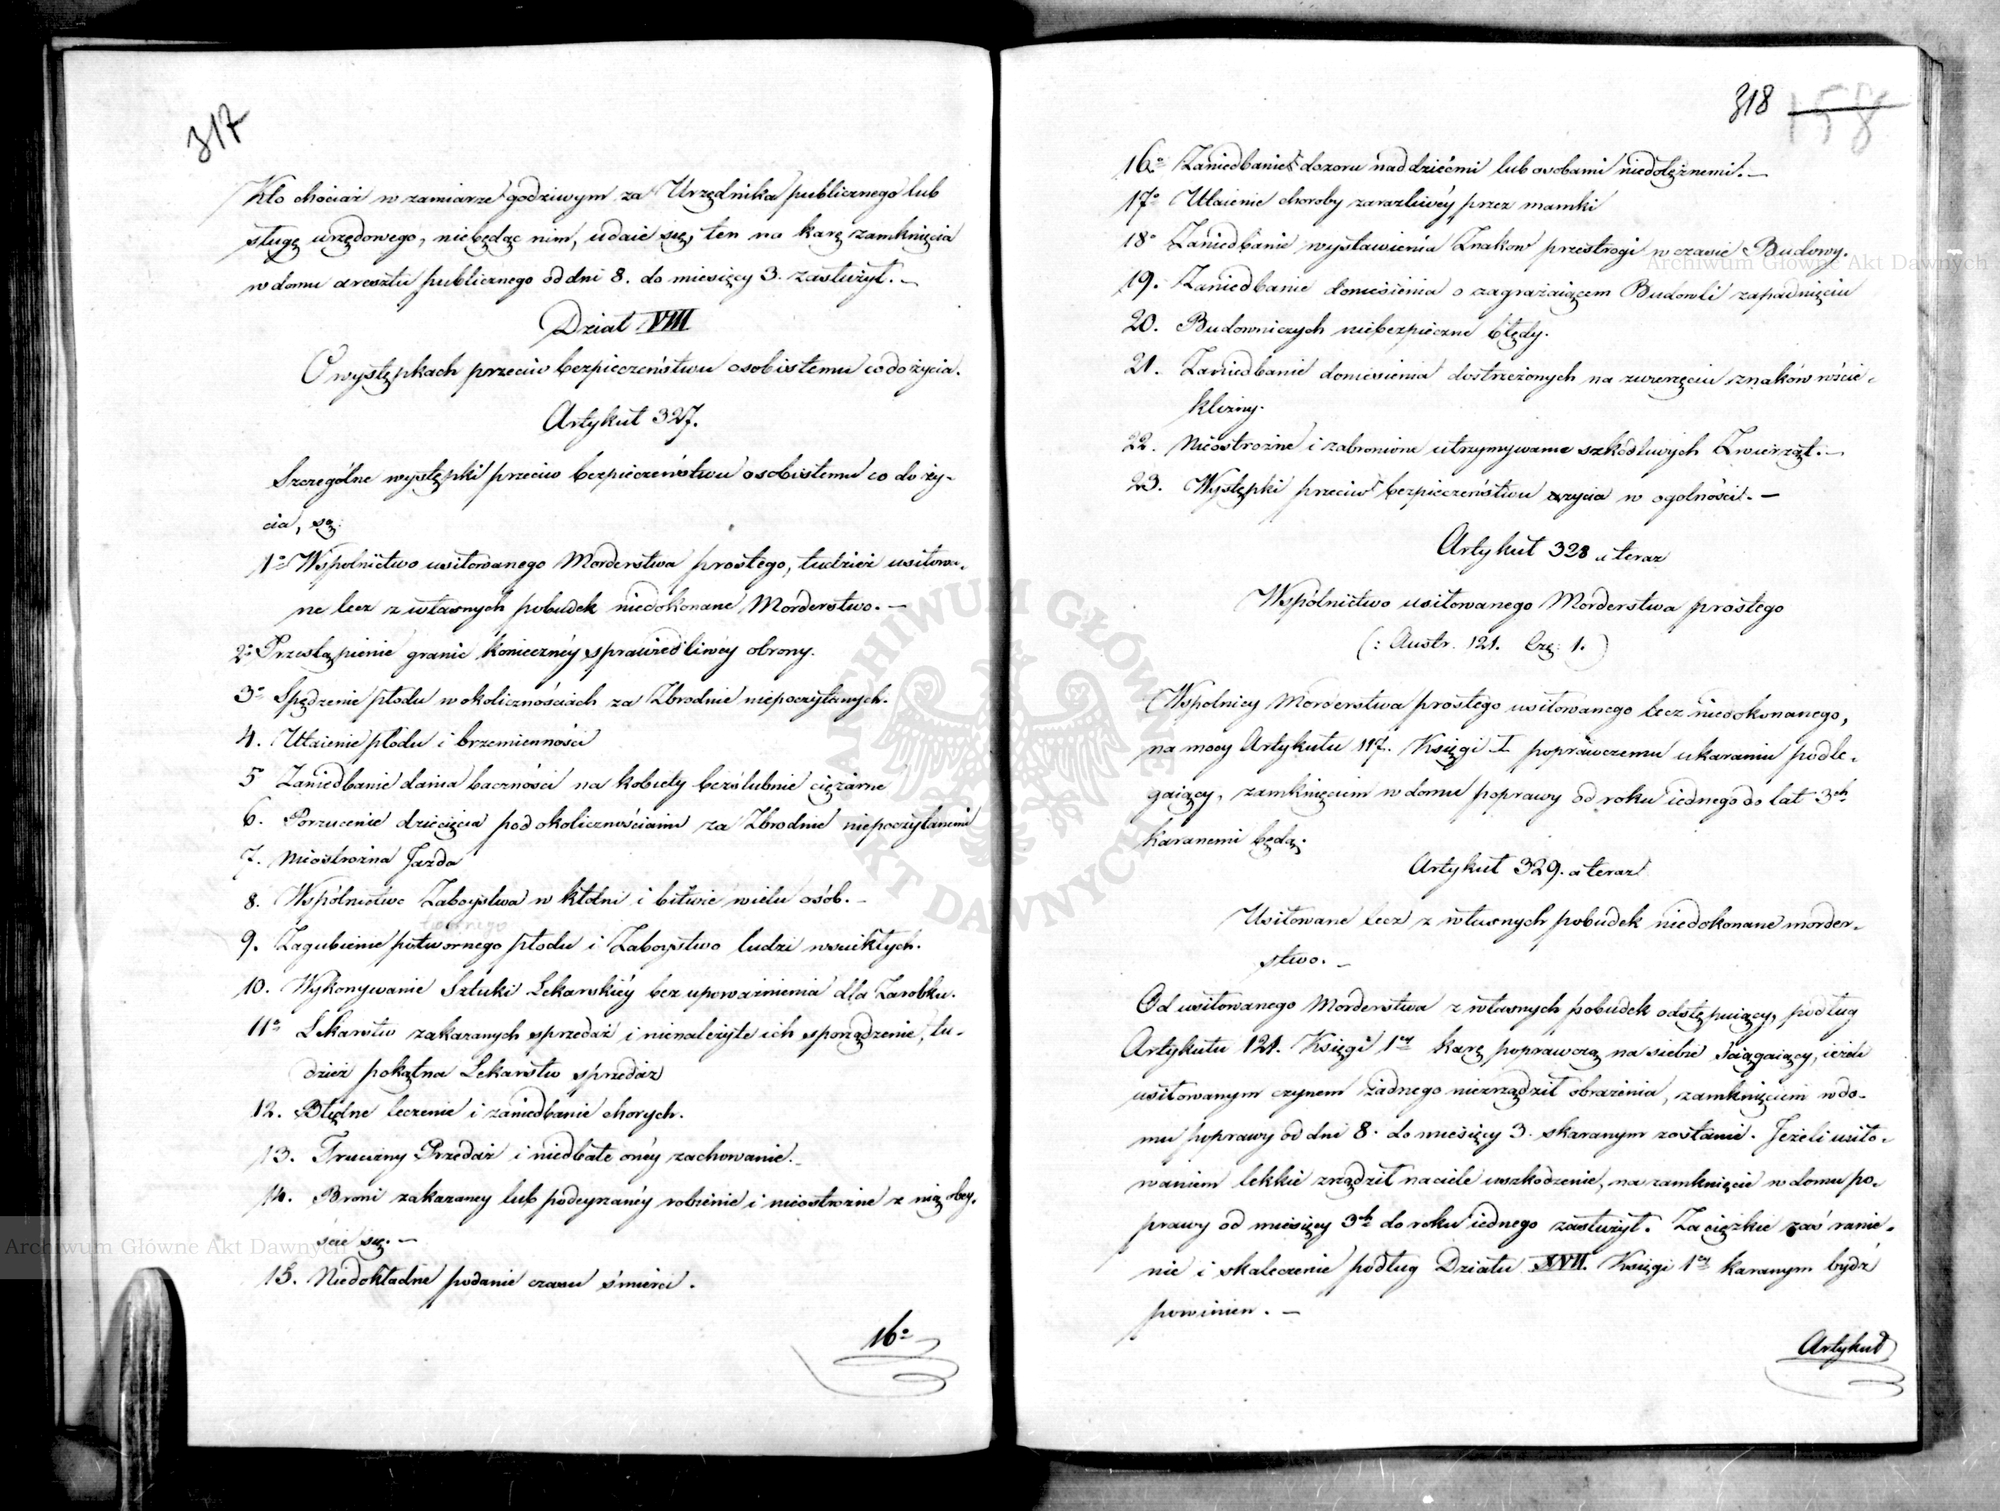 317
Kto chociaż w zamiarze godziwym za Urzędnika publicznego lub
sługę urzędowego, niebędąc nim, udaie się, ten na karę zamknięcia
w domu aresztu publicznego od dni 8. do miesięcy 3. zasłużył. —
Dział VIII
O występkach przeciw bezpieczeństwu osobistemu co do życia.
Artykuł 327.
Szczególne występki przeciw bezpieczeństwu osobistemu co do ży-
cia, są:
1o Wspolnictwo usiłowanego Morderstwa prostego, tudzież usiłowa-
ne lecz z własnych pobudek niedokonane Morderstwo. —
2o Przestąpienie granic konieczney sprawiedliwey obrony.
3o Spędzenie płodu w okolicznościach za Zbrodnie niepoczytanych.
4. Utaienie płodu i brzemienności
5 Zaniedbanie dania baczności na kobiety bezślubnie ciężarne
6. Porzucenie dziecięcia pod okolicznościami za Zbrodnie niepoczytanemi
7. Nieostrożna Jazda
8. Wspólnictwo Zaboystwa w kłótni i bitwie wielu osób. —
9. Zagubienie potwornego płodu i Zaboystwo ludzi wściekłych.
10. Wykonywanie Sztuki Lekarskiéy bez upoważnienia dla Zarobku.
11o Lekarstw zakazanych sprzedaż i nienależyte ich sporządzenie, tu-
dzież pokątna Lekarstw sprzedaż
12. Błędne leczenie i zaniedbanie chorych.
13. Trucizny Przedaż i niedbałe onéy zachowanie. —
14. Broni zakazaney lub podeyrzanéy robienie i nieostrożne z nią obey-
ście się. —
15. Niedokładne podanie czasu śmierci.
16o
318 158
16o Zaniedbanie dozoru nad dziećmi lub osobami niedołężnemi. —
17o Utaienie choroby zaraźliwéy przez mamki
18o Zaniedbanie wystawienia Znakow przestrogi w czasie Budowy.
19. Zaniedbanie doniesienia o zagrażaiącem Budowli zapadnięciu
20. Budowniczych niebezpieczne błędy.
21. Zaniedbanie doniesienia dostrzeżonych na zwierzęciu znaków wście-
klizny.
22. Nieostrożne i zabronione utrzymywanie szkodliwych Zwierząt. —
23. Występki przeciw bezpieczeństwu życia w ogolności. —
Artykuł 328 a teraz
Wspólnictwo usiłowanego Morderstwa prostego
(: Austr. 121. Czę: 1.)
Wspolnicy Morderstwa prostego usiłowanego lecz niedokonanego,
na mocy Artykułu 117. Księgi I poprawczemu ukaraniu podle-
gaiący, zamknięciem w domu poprawy od roku iednego do lat 3ch
karanemi będą.
Artykuł 329. a teraz
Usiłowane lecz z własnych pobudek niedokonane morder-
stwo. —
Od usiłowanego Morderstwa z własnych pobudek odstępuiący, podług
Artykułu 121. Księgi 1ey karę poprawczą na siebie ściągaiący, ieżeli
usiłowanym czynem żadnego niezrządził obrażenia, zamknięciem w do-
mu poprawy od dni 8. do miesięcy 3. skaranym zostanie. Jeżeli usiło-
waniem lekkie zrządził na ciele uszkodzenie, na zamknięcie w domu po-
prawy od miesięcy 3ch do roku iednego zasłużył. Za ciężkie zaś ranie-
nie i skaleczenie podług Działu XVII. Księgi 1ey karanym bydź
powinien. —
Artykuł
Archiwum Główne Akt Dawnych
Archiwum Główne Akt Dawnych
ARCHIWUM GŁÓWNE AKT DAWNYCH